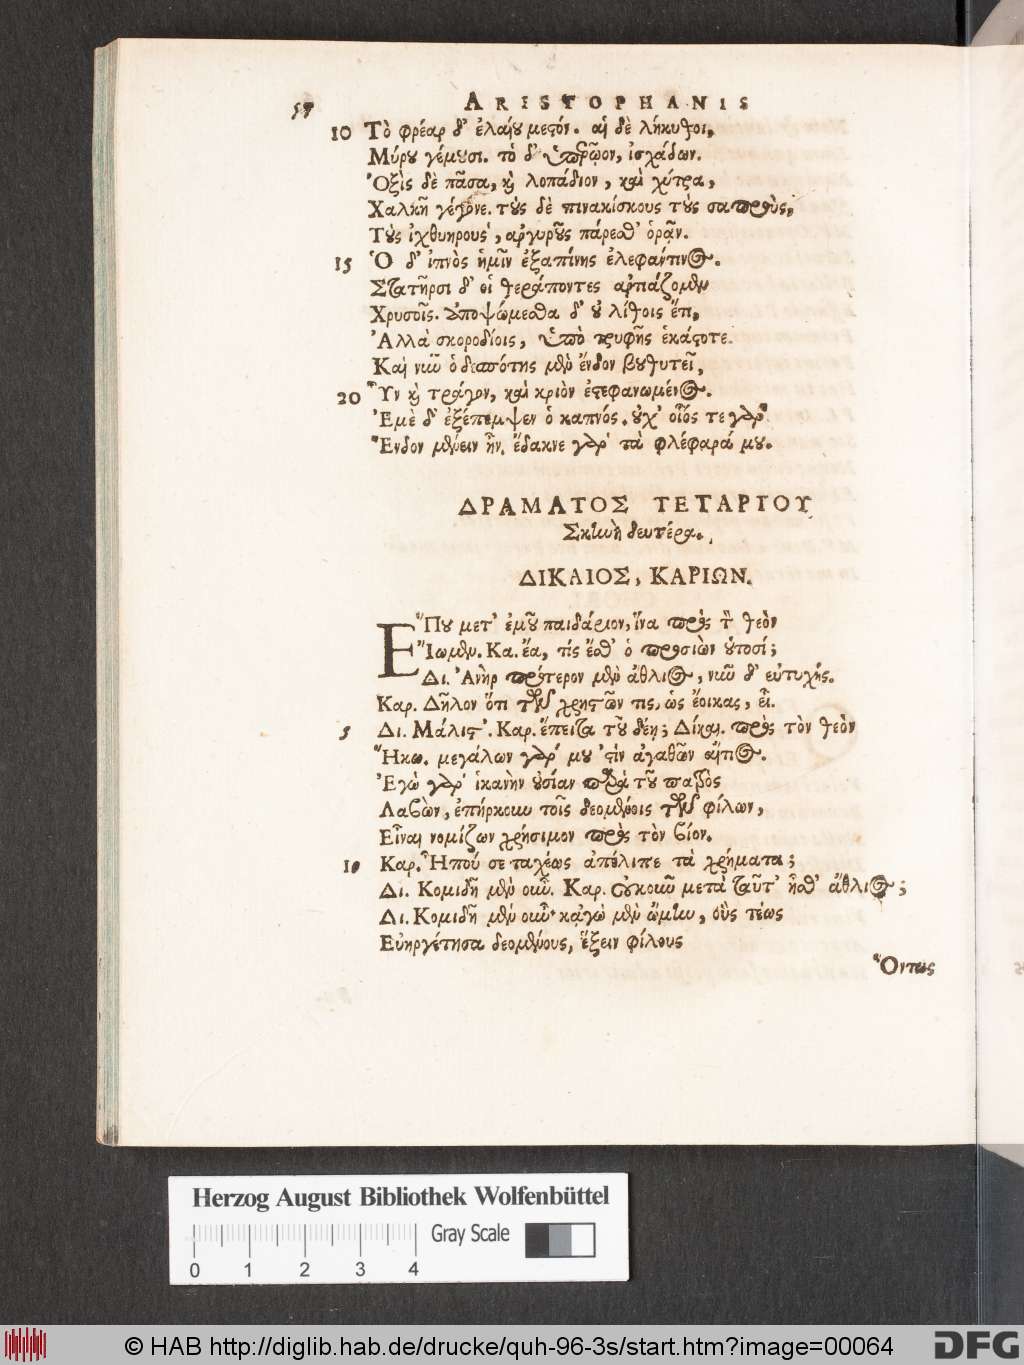 57 ARISTOPHANIS
10 Τὸ φρέαρ δ' ἐλαίου μεστόν. αἱ δὲ λήκυθοι,
Μύρου γέμουσι. τὸ δ' ὑπερῷον, ἰσχάδων.
Ὀξὶς δὲ πᾶσα, καὶ λοπάδιον, καὶ χύτρα,
Χαλκῆ γέγονε. τοὺς δὲ πινακίσκους τοὺς σαπροὺς,
Τοὺς ἰχθυηροὺς, ἀργυροῦς πάρεσθ' ὁρᾷν.
15 Ὁ δ' ἰπνὸς ἡμῖν ἐξαπίνης ἐλεφάντινος.
Στατῆρσι δ' οἱ θεράποντες ἀρτιάζομεν
Χρυσοῖς. ἀποψώμεσθα δ' οὐ λίθοις ἔτι,
Ἀλλὰ σκοροδίοις, ὑπὸ τρυφῆς ἑκάστοτε.
Καὶ νῦν ὁ δεσπότης μὲν ἔνδον βουθυτεῖ,
20 Ὗν καὶ τράγον, καὶ κριὸν ἐστεφανωμένος.
Ἐμὲ δ' ἐξέπεμψεν ὁ καπνός. οὐχ' οἷός τε γὰρ
Ἔνδον μένειν ἦν. ἔδακνε γὰρ τὰ φλέφαρά μου.
ΔΡΑΜΑΤΟΣ ΤΕΤΑΡΤΟΥ
Σκηνὴ δευτέρα.
ΔΙΚΑΙΟΣ, ΚΑΡΙΩΝ.
ἝΠου μετ' ἐμοῦ παιδάριον, ἵνα πρὸς τὸν θεὸν
Ἴωμεν. Κα. ἔα, τίς ἔσθ' ὁ προσιὼν οὑτοσί;
Δι. Ἀνὴρ πρότερον μὲν ἄθλιος, νῦν δ' εὐτυχής.
Καρ. Δῆλον ὅτι τῶν χρηστῶν τις, ὡς ἔοικας, εἶ.
5 Δι. Μάλιστ'. Καρ. ἔπειτα τοῦ δέῃ; Δίκαι. πρὸς τὸν θεὸν
Ἥκω. μεγάλων γάρ μου 'στὶν ἀγαθῶν αἴτιος.
Ἐγὼ γὰρ ἱκανὴν οὐσίαν παρὰ τοῦ πατρὸς
Λαβὼν, ἐπήρκουν τοῖς δεομένοις τῶν φίλων,
Εἶναι νομίζων χρήσιμον πρὸς τὸν βίον.
10 Καρ. Ἦπού σε ταχέως ἀπέλιπε τὰ χρήματα;
Δι. Κομιδῆ μὲν οὖν. Καρ. οὐκοῦν μετὰ ταῦτ' ἦσθ' ἄθλιος;
Δι. Κομιδῆ μὲν οὖν· κἀγὼ μὲν ᾤμην, οὓς τέως
Εὐηργέτησα δεομένους, ἕξειν φίλους
Ὄντως
Herzog August Bibliothek Wolfenbüttel
Gray Scale
0 1 2 3 4
© HAB http://diglib.hab.de/drucke/quh-96-3s/start.htm?image=00064
DFG